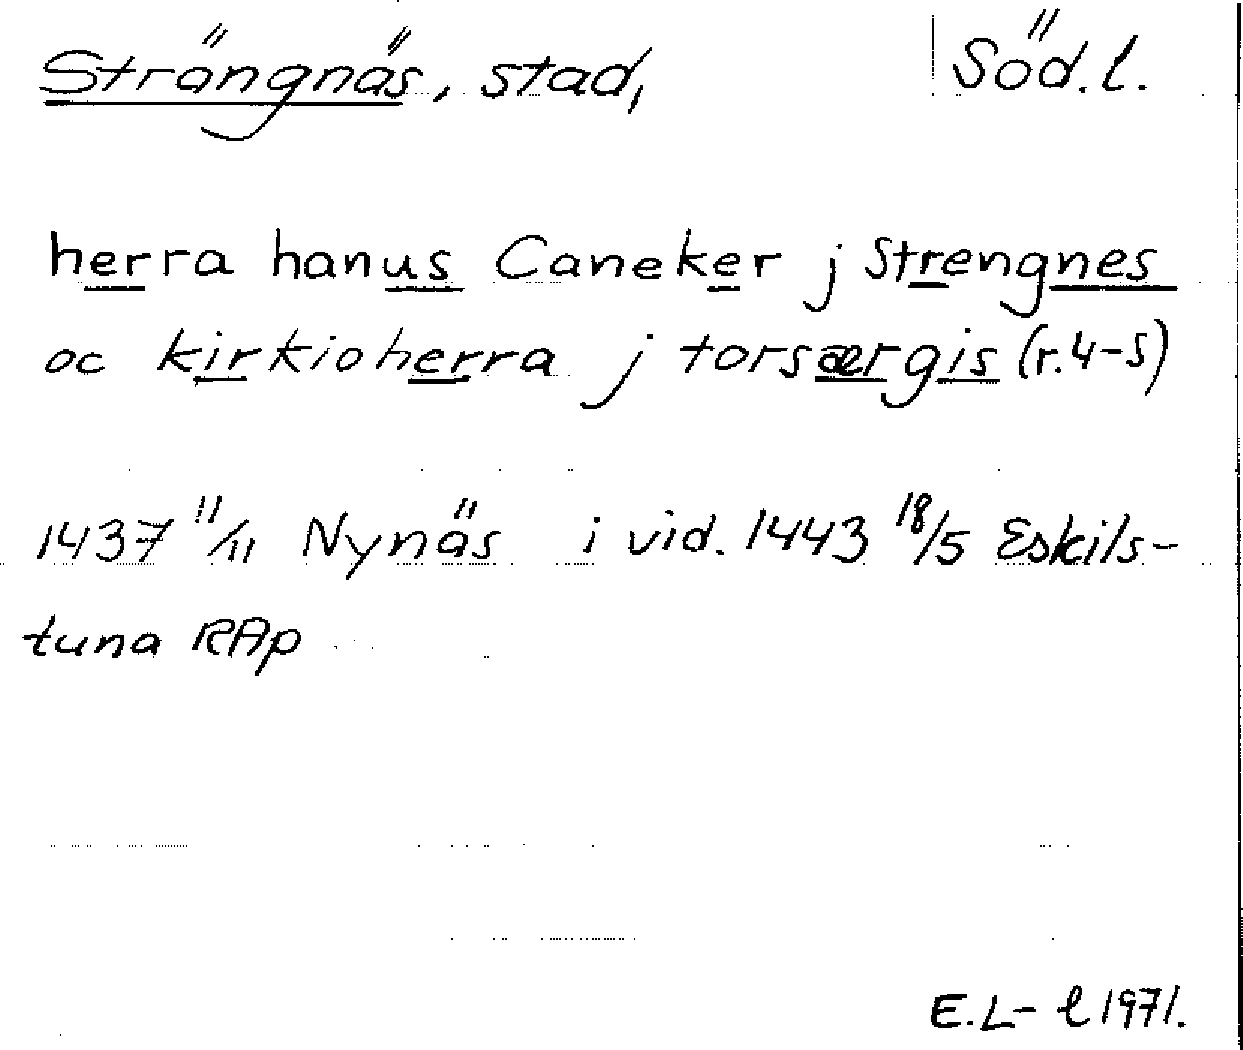 Strängnäs, stad, Söd.l.
herra hanus Caneker j Strengnes
oc kirkioherra j torsærgis (r.4-5)
1437 11/11 Nynäs i vid. 1443 18/5 Eskils-
tuna RAp
E.L-l 1971.